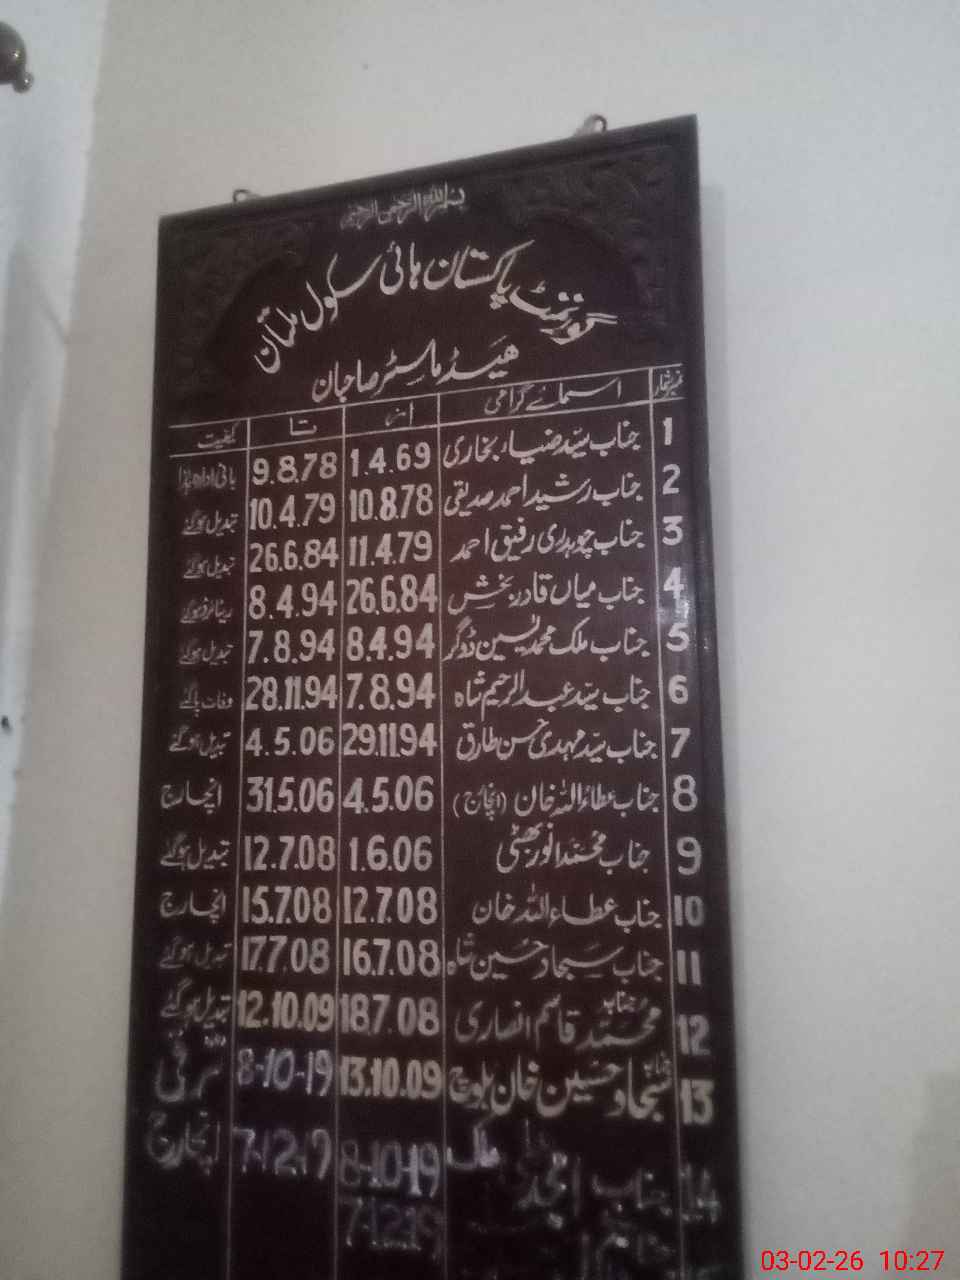 بسم اللہ الرحمن الرحیم
گورنمنٹ پاکستان ہائی سکول ملتان
ہیڈ ماسٹر صاحبان
نمبر شمار اسمائے گرامی از تا کیفیت
1 جناب سید ضیاء بخاری 1.4.69 9.8.78 بانی ادارہ ہذا
2 جناب رشید احمد صدیقی 10.8.78 10.4.79 تبدیل ہو گئے
3 جناب چوہدری رفیق احمد 11.4.79 26.6.84 تبدیل ہو گئے
4 جناب میاں قادر بخش 26.6.84 8.4.94 ریٹائرڈ ہو گئے
5 جناب ملک محمد یٰسین ڈوگر 8.4.94 7.8.94 تبدیل ہو گئے
6 جناب سید عبد الرحیم شاہ 7.8.94 28.11.94 وفات پا گئے
7 جناب سید مہدی حسن طارق 29.11.94 4.5.06 تبدیل ہو گئے
8 جناب عطاء اللہ خان (انچارج) 4.5.06 31.5.06 انچارج
9 جناب محمد انور بھٹی 1.6.06 12.7.08 تبدیل ہو گئے
10 جناب عطاء اللہ خان 12.7.08 15.7.08 انچارج
11 جناب سید سجاد حسین شاہ 16.7.08 17.7.08 تبدیل ہو گئے
12 جناب محمد قاسم انصاری 18.7.08 12.10.09 تبدیل ہو گئے
13 جناب سجاد حسین خان بلوچ 13.10.09 8-10-19 ترقی
14 جناب امجد ملک 8-10-19 7-12-19 انچارج
7-12-19
03-02-26 10:27